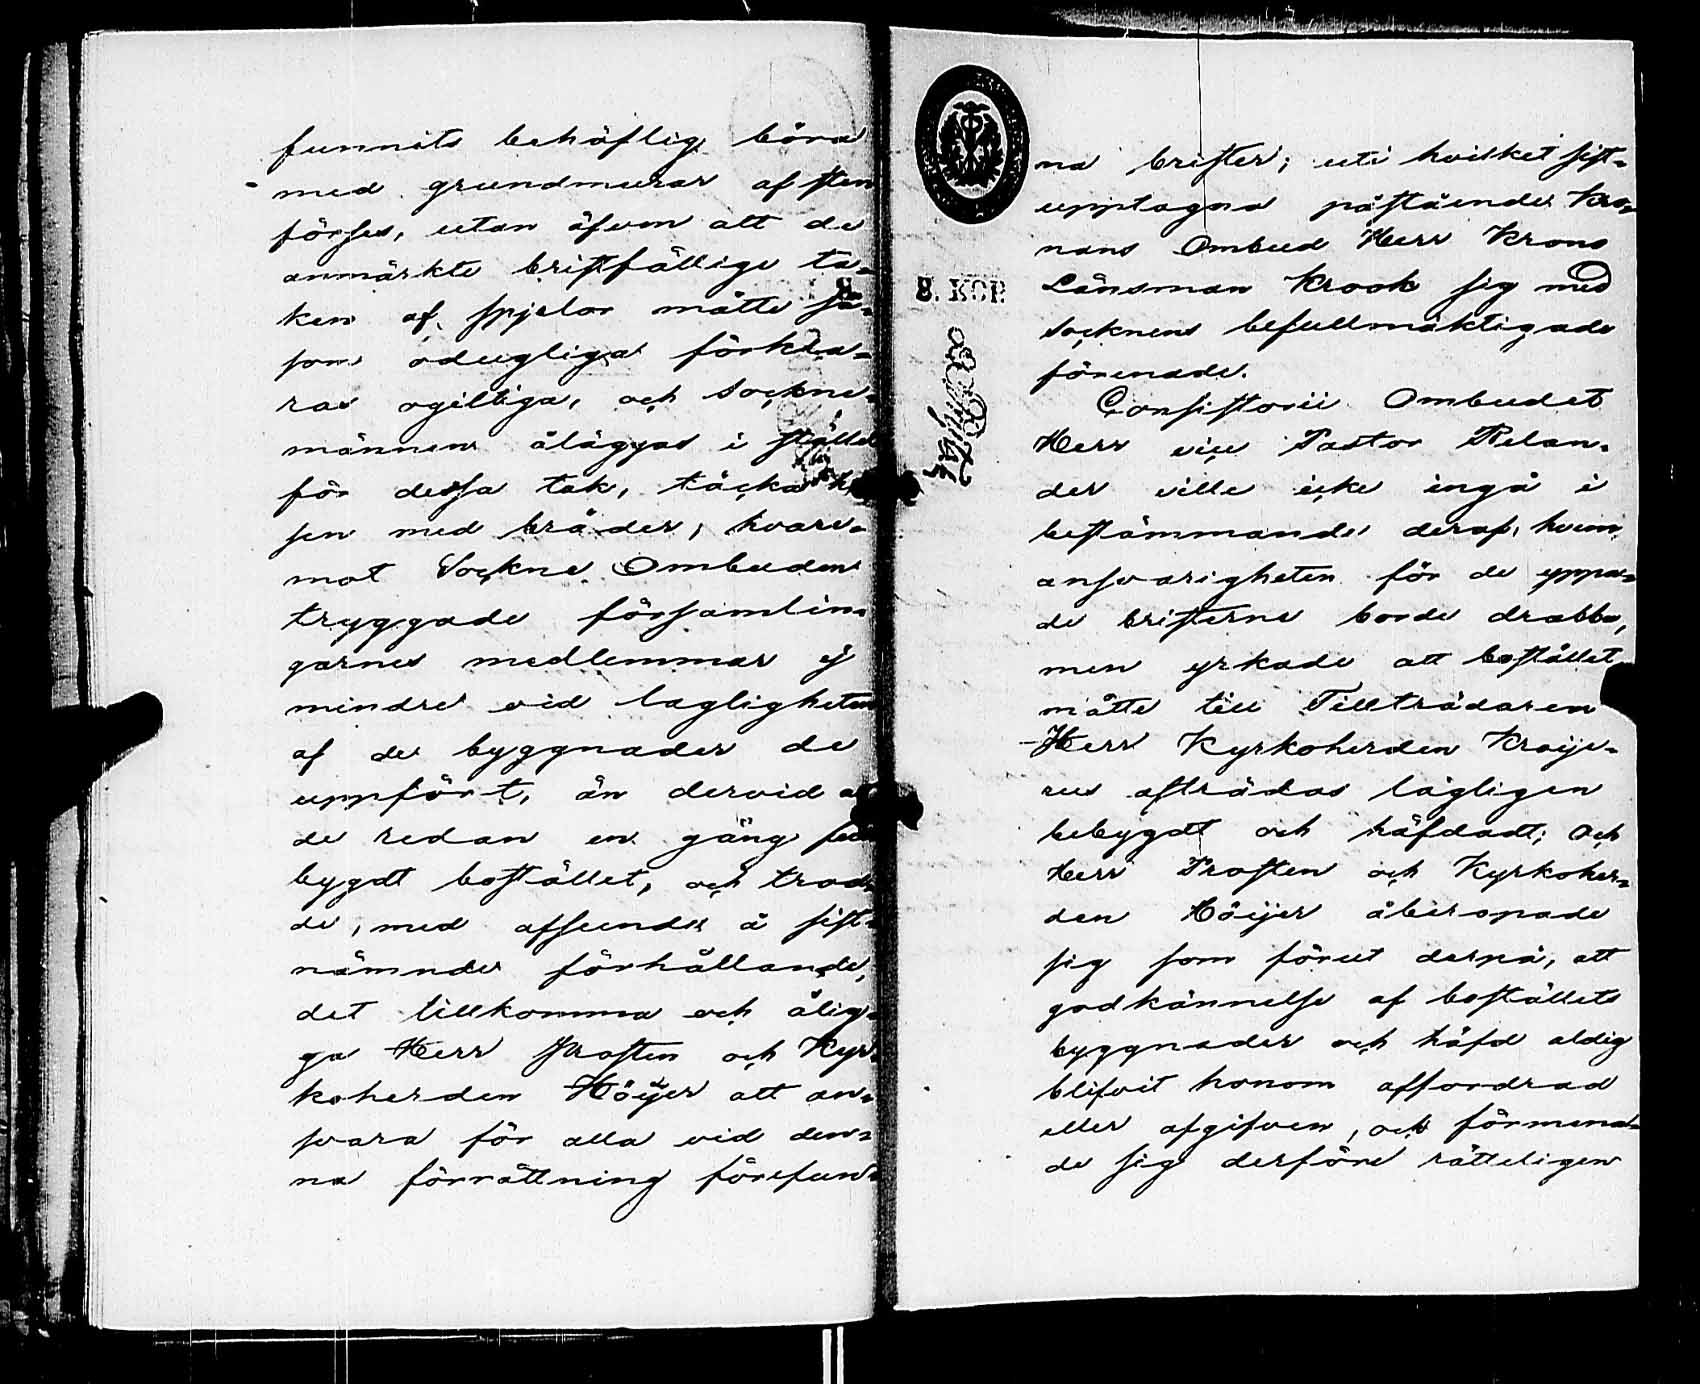 funnits behöflig böra
med grundmurar af sten
förses, utan äfven att de
anmärkte bristfällige ta-
ken af spjelor måtte så-
som odugliga förkla-
ras ogiltiga, och Sockne-
männen åläggas i stället
för dessa tak, täcka
sen med bräder, hvare-
mot Sockne Ombuden
tryggade församlin-
garnes medlemmar ej
mindre vid lagligheten
af de byggnader de
uppfört, än dervid att
de redan en gång full
bygdt bostället, och trod-
de, med afseende å sist-
nämnde förhållande,
det tillkomma och ålig-
ga Herr Prosten och Kyr-
koherden Höijer att an-
svara för alla vid den-
na förrättning förefun-
8. KOP.
na brister; uti hvilket sist-
upptagna påstående Kro-
nans Ombud Herr Krono
Länsman Krook sig med
socknens befullmäktigade
förenade.
Consistorii Ombudet
Herr vice Pastor Relan-
der ville icke ingå i
bestämmande deraf, hvem
ansvarigheten för de yppa-
de bristerne borde drabba,
men yrkade att bostället
måtte till Tillträdaren
Herr Kyrkoherden Kroije-
rus afträdas lagligen
bebygdt och häfdadt; Och
Herr Prosten och Kyrkoher-
den Höijer åberopade
sig som förut derpå, att
godkännelse af boställets
byggnader och häfd aldig
blifvit honom affordrad
eller afgifven, och förmena-
de sig derföre rätteligen